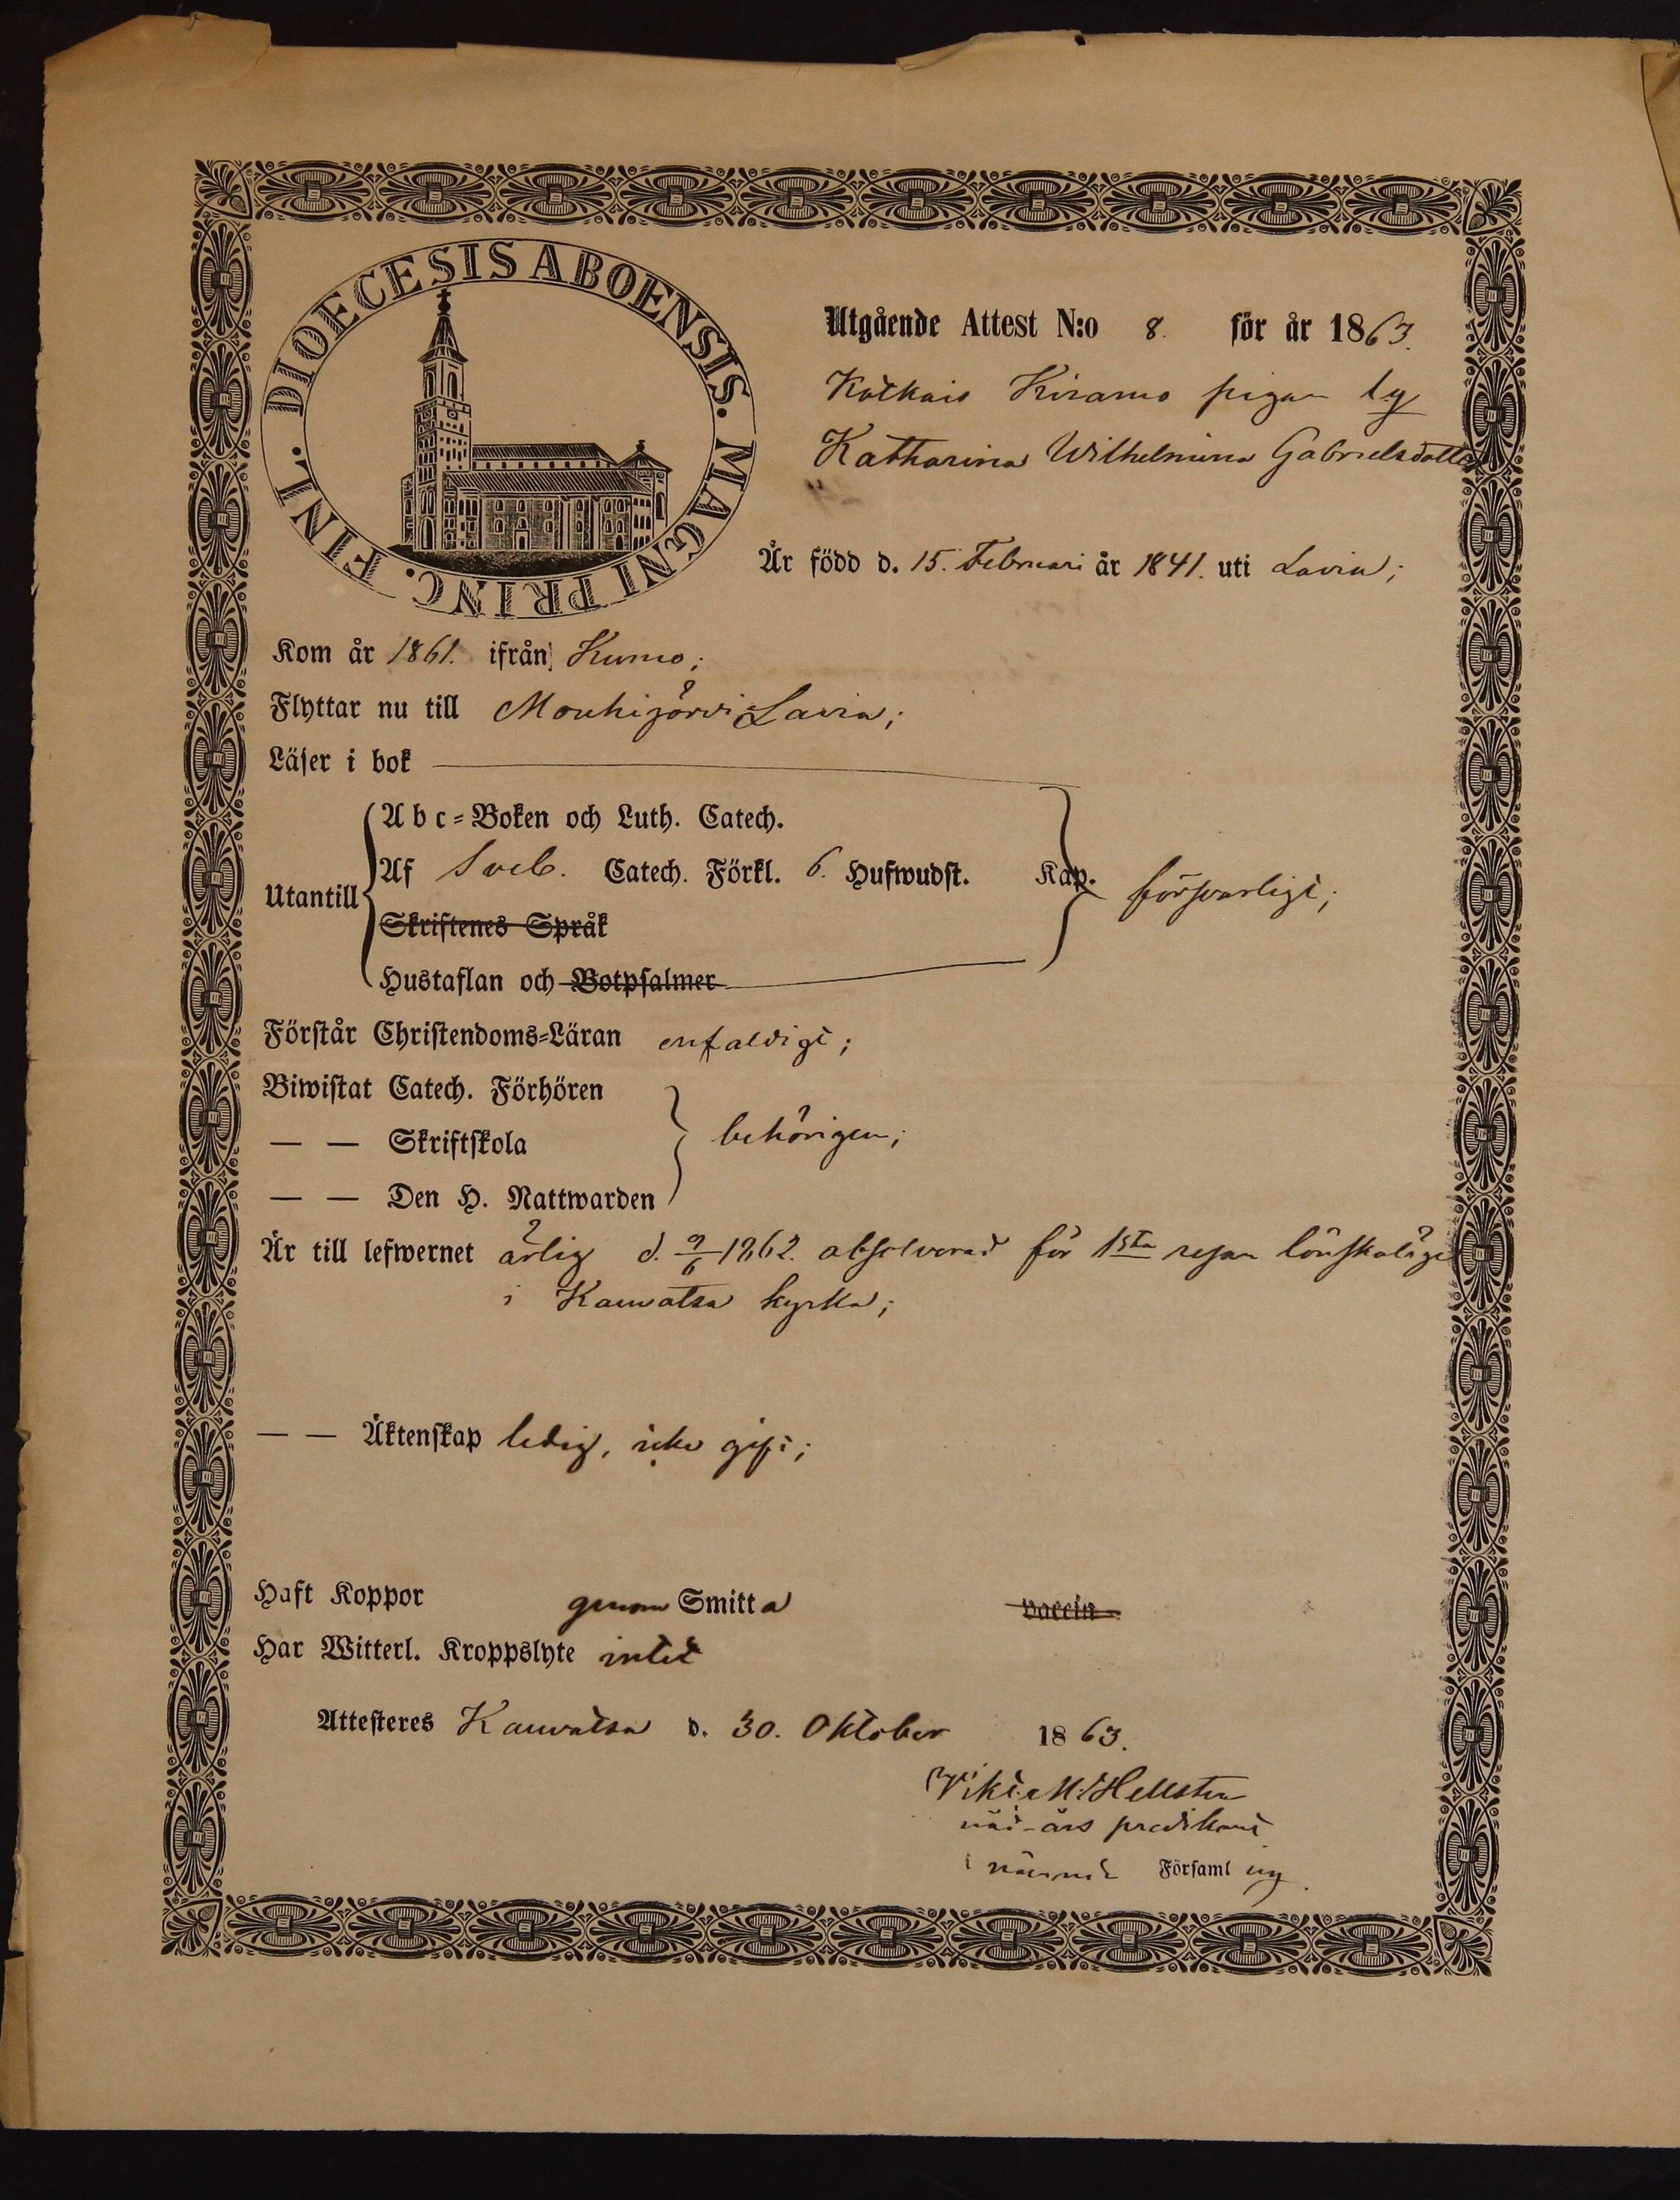 DIOECESIS ABOENSIS. MAGNI PRINC. FINL.
Utgående Attest N:o 8. för år 1863.
pigan
Katharina Wilhelmina Gabrielsdotter
Är född d. 15. Februari år 1841. uti Lavia;
Kom år 1861. ifrån Kumo;
Flyttar nu till Mouhijärvi Lavia;
Läser i bok
Utantill
Abc-Boken och Luth. Catech.
Af Sveb. Catech. Förkl. 6. Hufwudst. Kap.
försvarligt;
Skriftenes Språk
Hustaflan och Botpsalmer
Förstår Christendoms-Läran enfaldigt;
Biwistat Catech. Förhören
— — Skriftskola
behörigen;
— — Den H. Nattwarden
Är till lefwernet ärlig d. 9/6 1862. absolverad för 1sta resan lönskaläge
i Kauvatsa kyrka;
— — Äktenskap ledig, icke gift;
Haft Koppor genom Smitta vaccin
Har Witterl. Kroppslyte intet
Attesteres Kauvatsa d. 30. Oktober 1863.
Hellsten
nåd-års predikant
i Församling